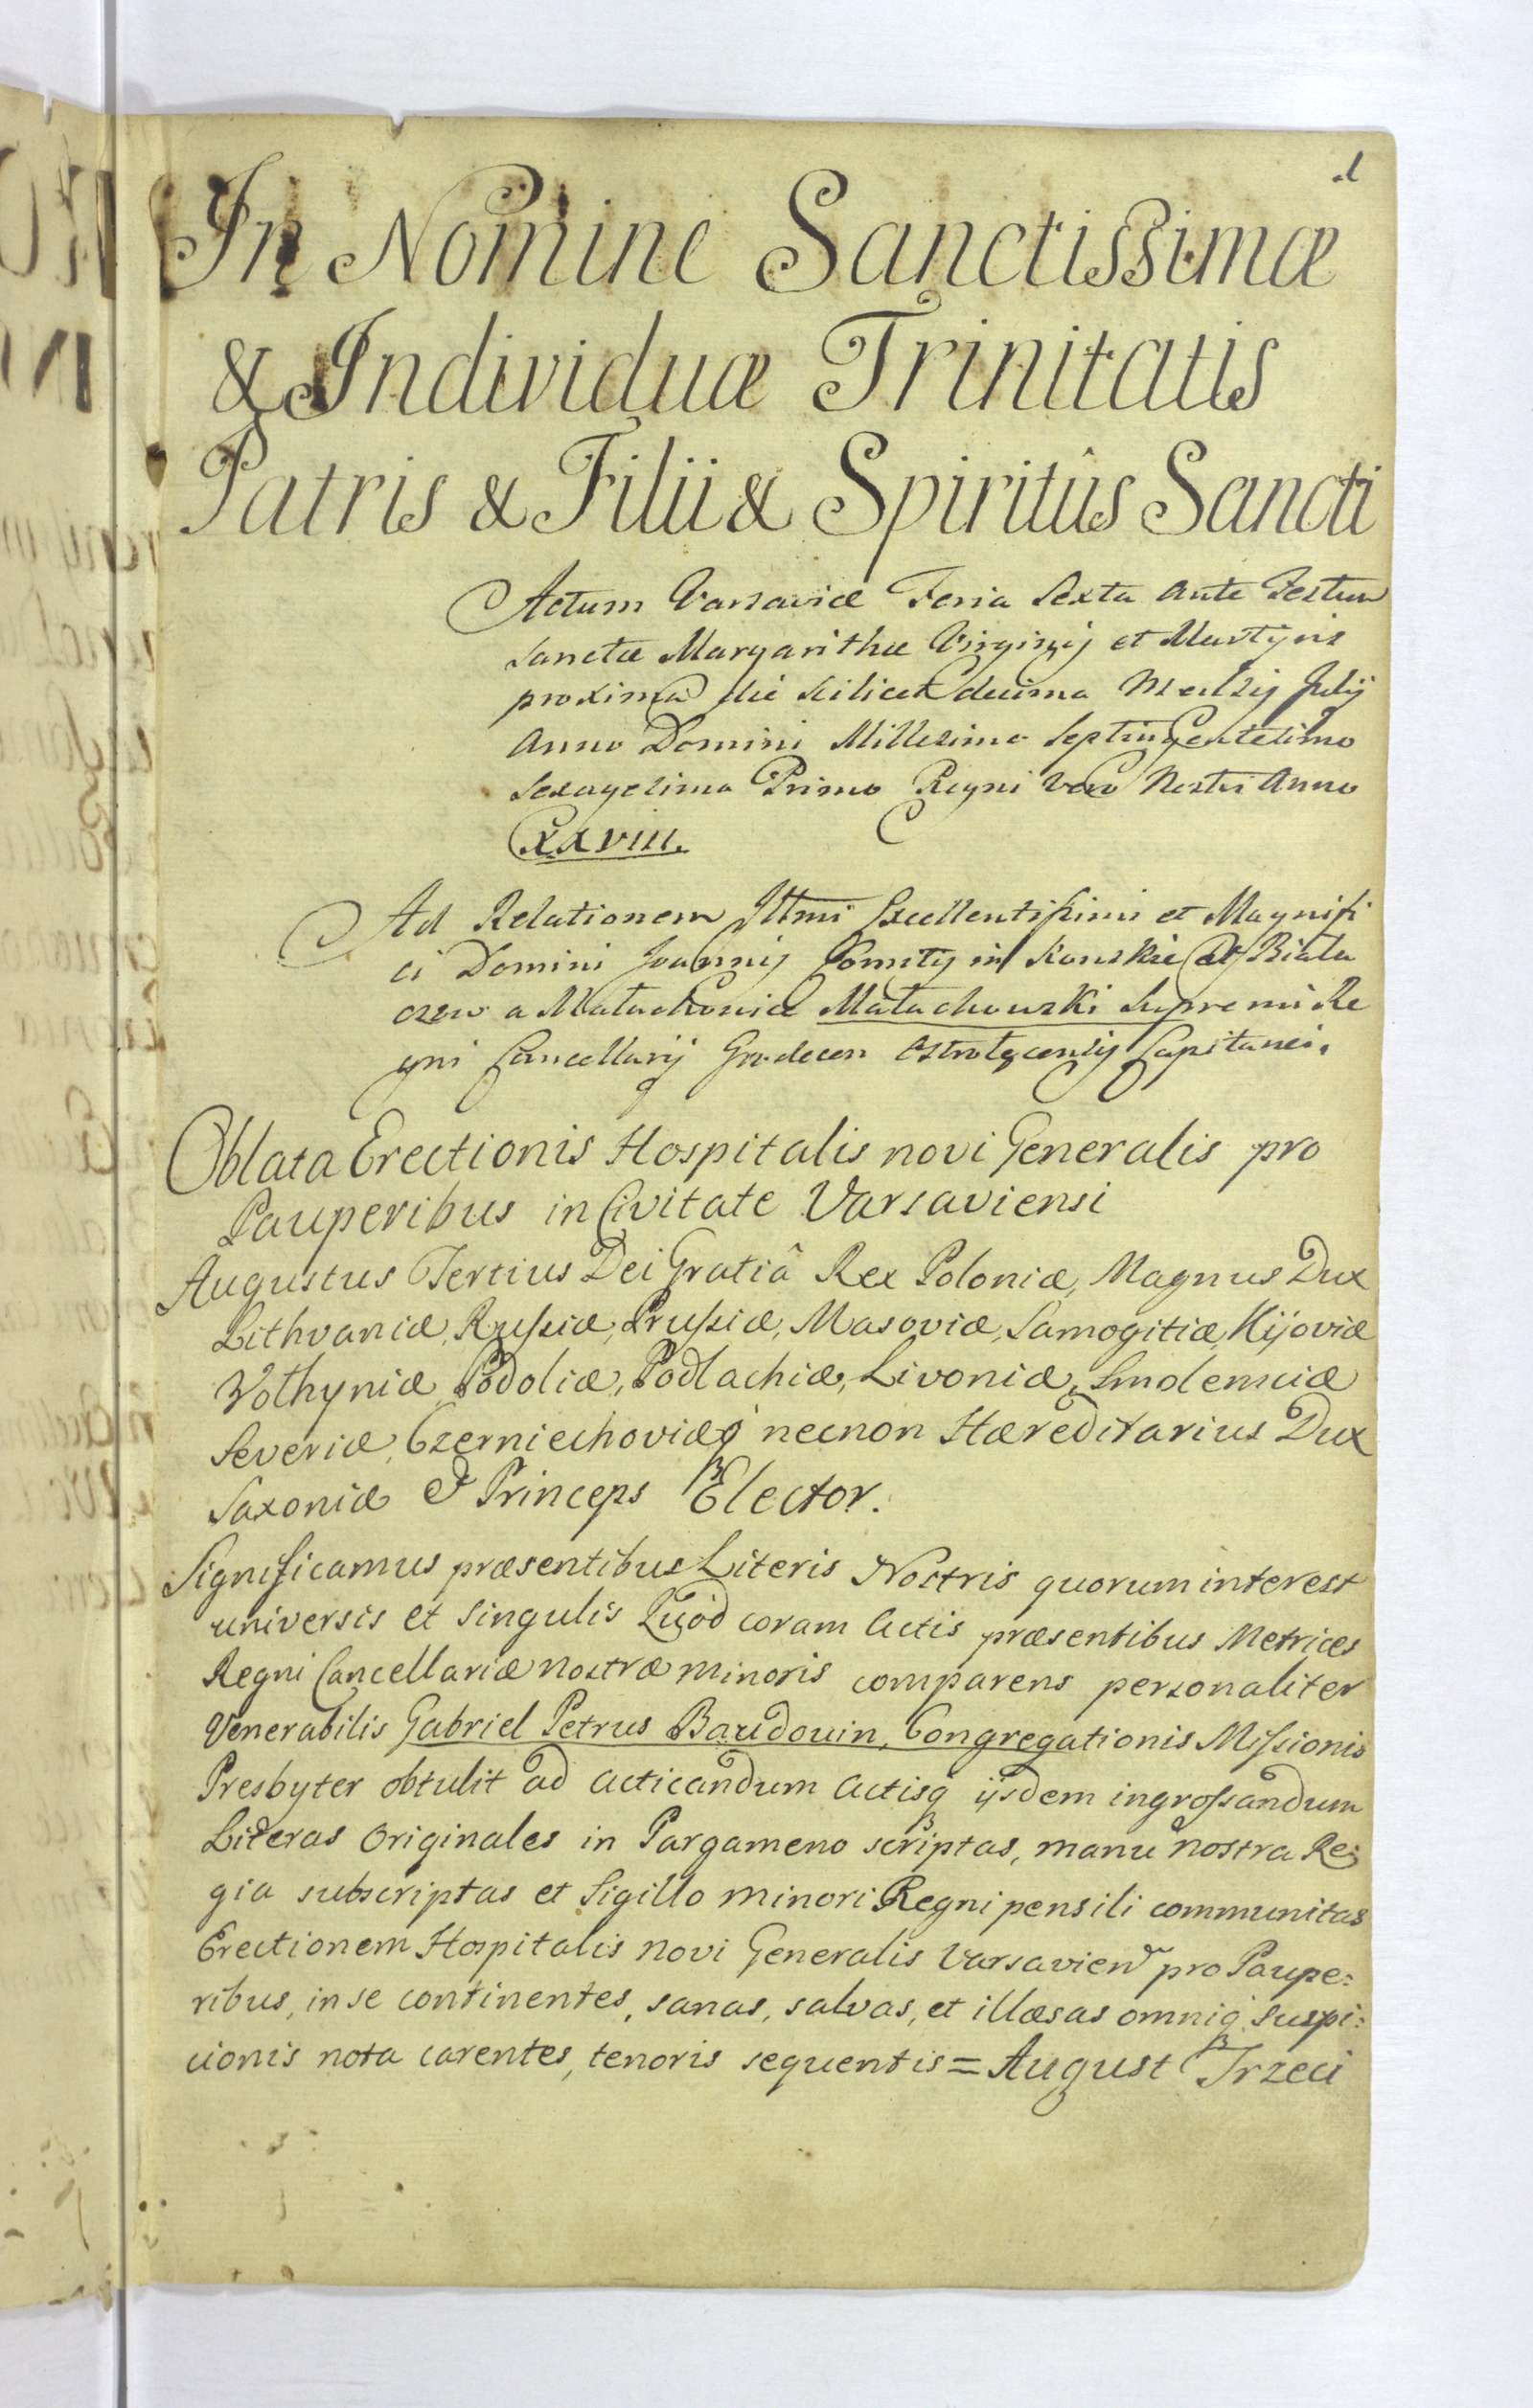 1
In Nomine Sanctissimæ
& Individuæ Trinitatis
Patris & Filii & Spiritûs Sancti
Actum Varsaviæ Feria Sexta ante Festum
Sanctæ Margarithæ Virginis et Martyris
proxima die scilicet decima Mensis Julij
Anno Domini Millesimo Septingentesimo
Sexagesimo Primo Regni vero Nostri Anno
XXVIII.
Ad Relationem Illmi Excellentissimi et Magnifi
ci Domini Joannis Comitis in Konskie et Biala
czew a Małachowice Małachowski Supremi Re
gni Cancellarij Grodecen Ostrołęcensis Capitanei.
Oblata Erectionis Hospitalis novi Generalis pro
Pauperibus in Civitate Varsaviensi
Augustus Tertius Dei Gratiâ Rex Poloniæ, Magnus Dux
Lithvaniæ, Russiæ, Prussiæ, Masoviæ, Samogitiæ, Kijoviæ
Volhyniæ, Podoliæ, Podlachiæ, Livoniæ, Smolensciæ
Severiæ, Czerniechoviæq́ necnon Hæreditarius Dux
Saxoniæ & Princeps Elector.
Significamus præsentibus Literis Nostris quorum interest
universis et singulis Quòd coram Actis præsentibus Metrices
Regni Cancellariæ nostræ minoris comparens personaliter
Venerabilis Gabriel Petrus Baudouin, Congregationis Missionis
Presbyter obtulit ad acticandum Actisq́ ijsdem ingrossandum
Literas Originales in Pargameno scriptas, manu nostra Re:
gia subscriptas et Sigillo minori Regni pensili communitas
Erectionem Hospitalis novi Generalis Varsavien pro Paupe:
ribus, in se continentes, sanas, salvas, et illæsas omniq́ suspi:
cionis nota carentes, tenoris sequentis = August Trzeci